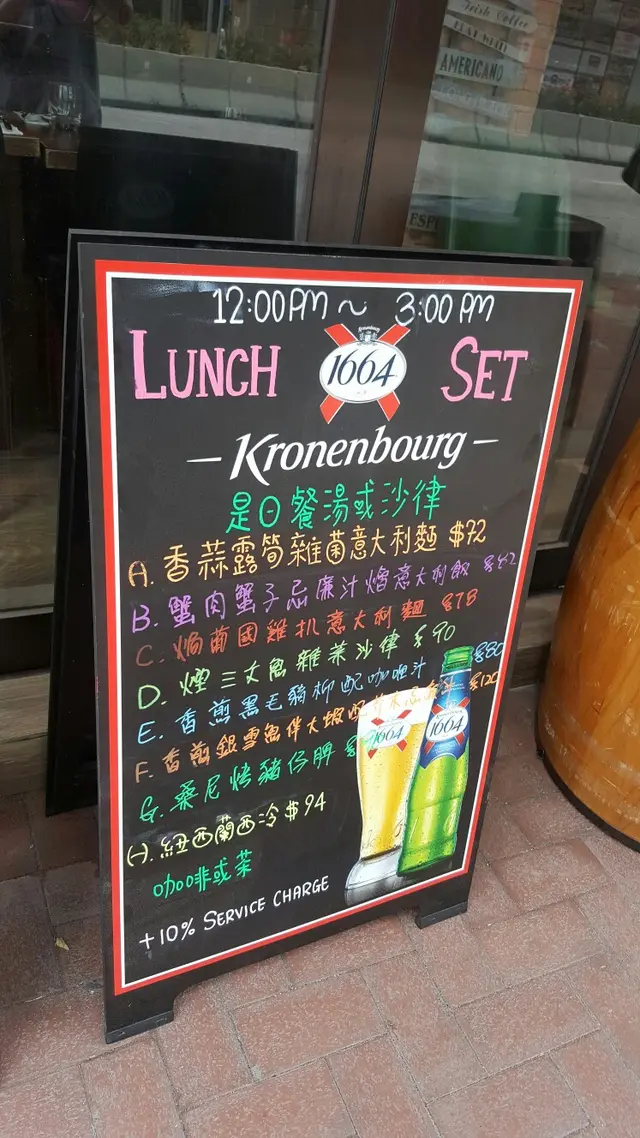 Irish Coffee
FLAT WHITE
AMERICANO
ESP
12:00PM ~ 3:00 PM
LUNCH SET
Kronenbourg
1664
– Kronenbourg –
是日餐湯或沙律
A. 香蒜露筍雜菌意大利麵 $72
B. 蟹肉蟹子忌廉汁燴意大利飯
C. 焗葡國雞扒意大利麵 $78
D. 煙三文魚雜菜沙律 $90
E. 香煎黑毛豬柳配咖喱汁 $80
F. 香煎銀雪魚伴大蝦配 $120
G. 桑尼烤豬仔髀
H. 紐西蘭西冷 $94
咖啡或茶
+10% SERVICE CHARGE
1664
1664